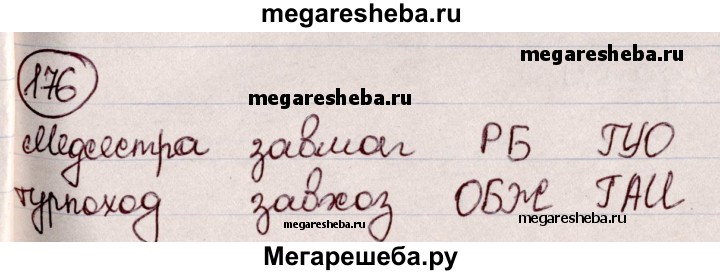 megaresheba.ru
176
megaresheba.ru
megaresheba.ru
Медсестра завмаг РБ ГУО
турпоход завхоз ОБЖ ГАИ
megaresheba.ru
megaresheba.ru
Мегарешеба.ру